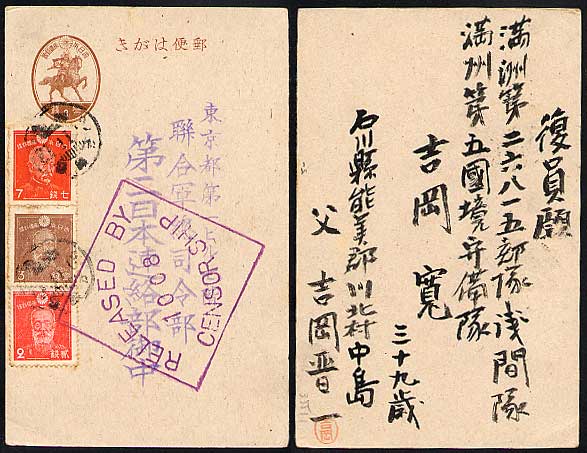 郵便はがき
東京都第一
聯合軍司令部
第二日本連絡部御中
7 七銭
3
2 貳銭
RELEASED BY
CENSORSHIP
復員願
満洲第二六八一五部隊浅間隊
満州第五國境守備隊
吉岡寛
三十九歳
石川縣能美郡川北村中島
父 吉岡晋一
吉岡